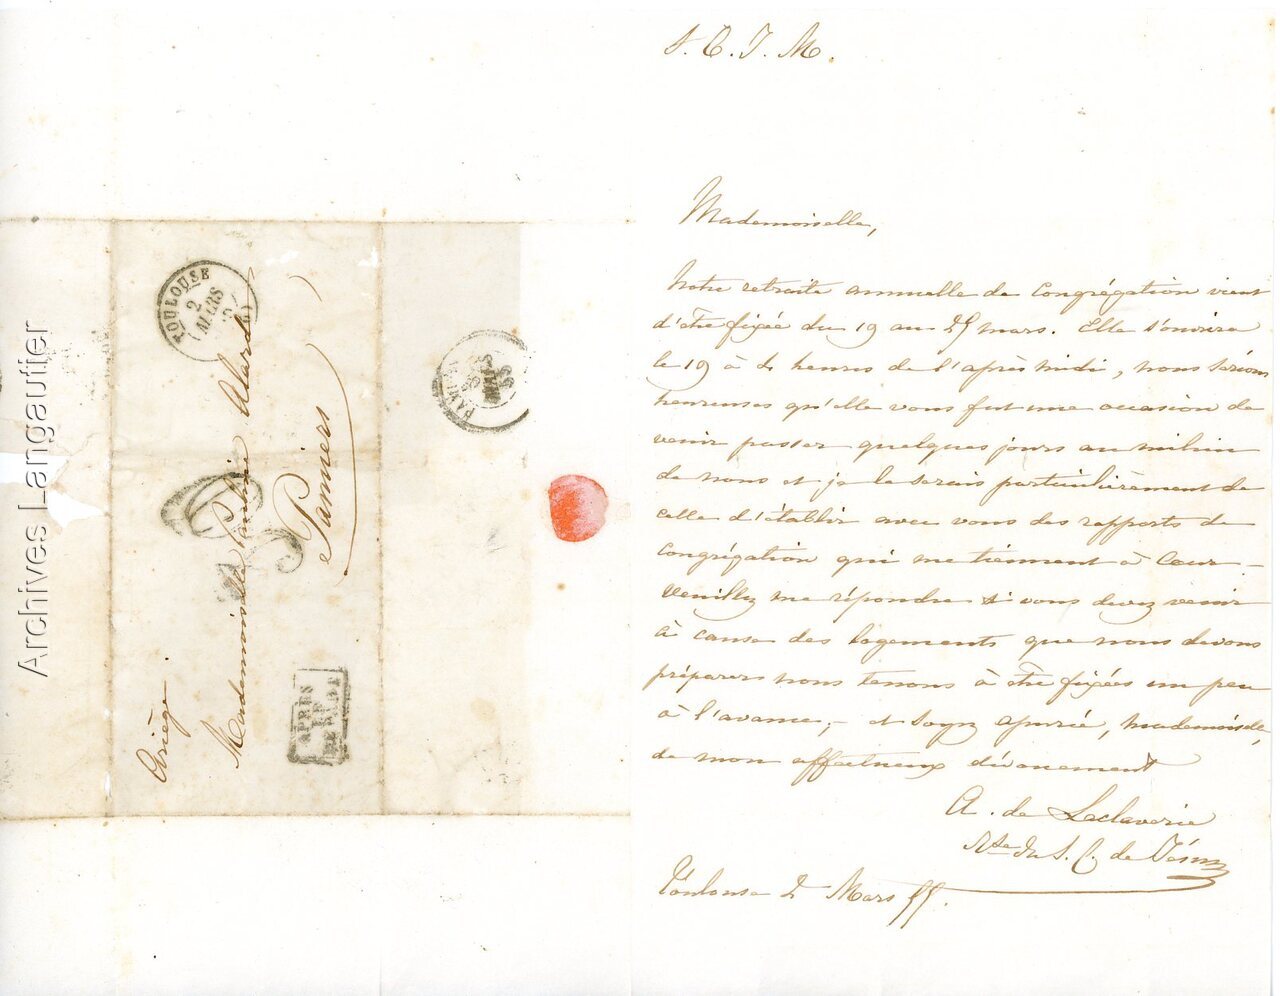 Archives Langautier
TOULOUSE
2
MARS
PAMIERS
MARS
55
Ariège.
Mademoiselle Pauline Alard
Pamiers
APRÈS
LE
DÉPART
S. C. J. M.
Mademoiselle,
Notre retraite annuelle de Congrégation vient
d'être fixée du 19 au 25 mars. Elle s'ouvrira
le 19 à 5 heures de l'après midi, nous serions
heureuses qu'elle vous fut une occasion de
venir passer quelques jours au milieu
de nous et je le serais particulièrement de
celle d'établir avec vous des rapports de
Congrégation qui me tiennent à Cœur –
Veuillez me répondre si vous devez venir
à cause des logements que nous devons
préparer nous tenons à être fixées un peu
à l'avance, – et soyez assurée, mademoiselle,
de mon affectueux dévouement
A. de Laclaverie
Rse du S. C. de Jésus
Toulouse 2 Mars 55.